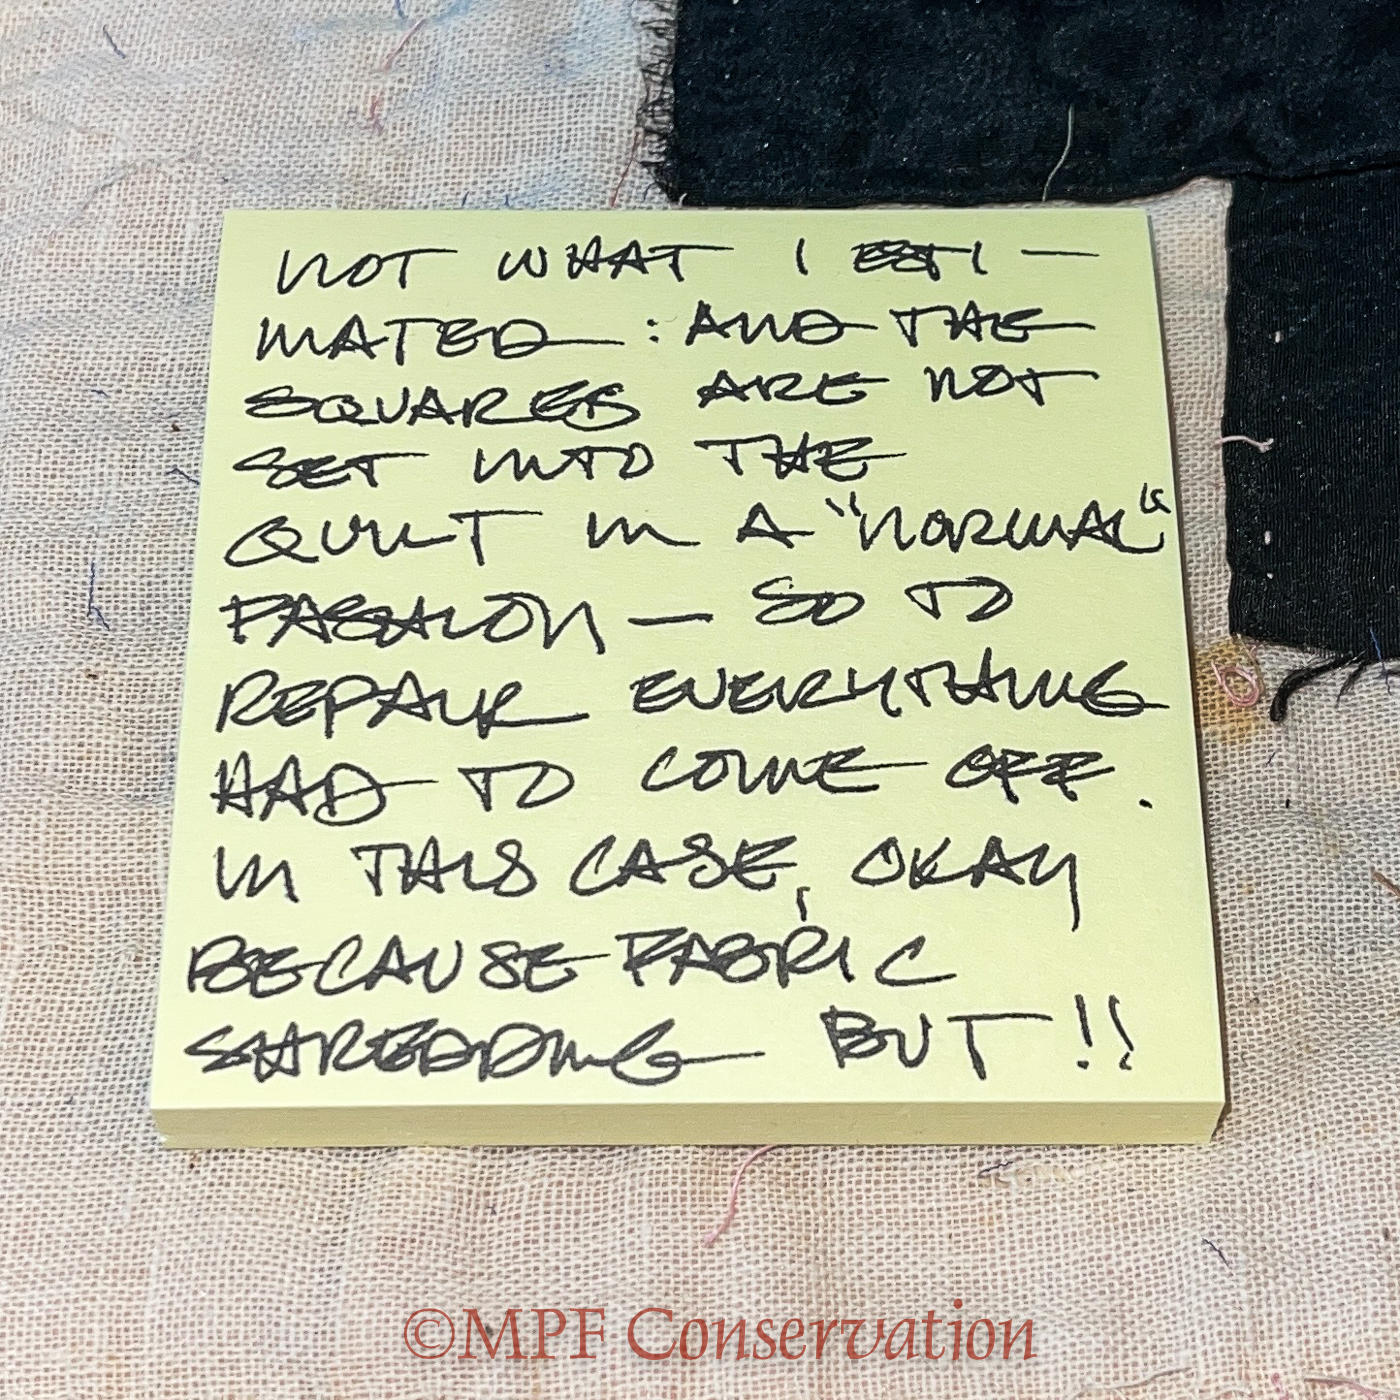 NOT WHAT I ESTI-
MATED : AND THE
SQUARES ARE NOT
SET INTO THE
QUILT IN A "NORMAL"
FASHION — SO TO
REPAIR EVERYTHING
HAD TO COME OFF.
IN THIS CASE, OKAY
BECAUSE FABRIC
SHREDDING BUT!!
©MPF Conservation